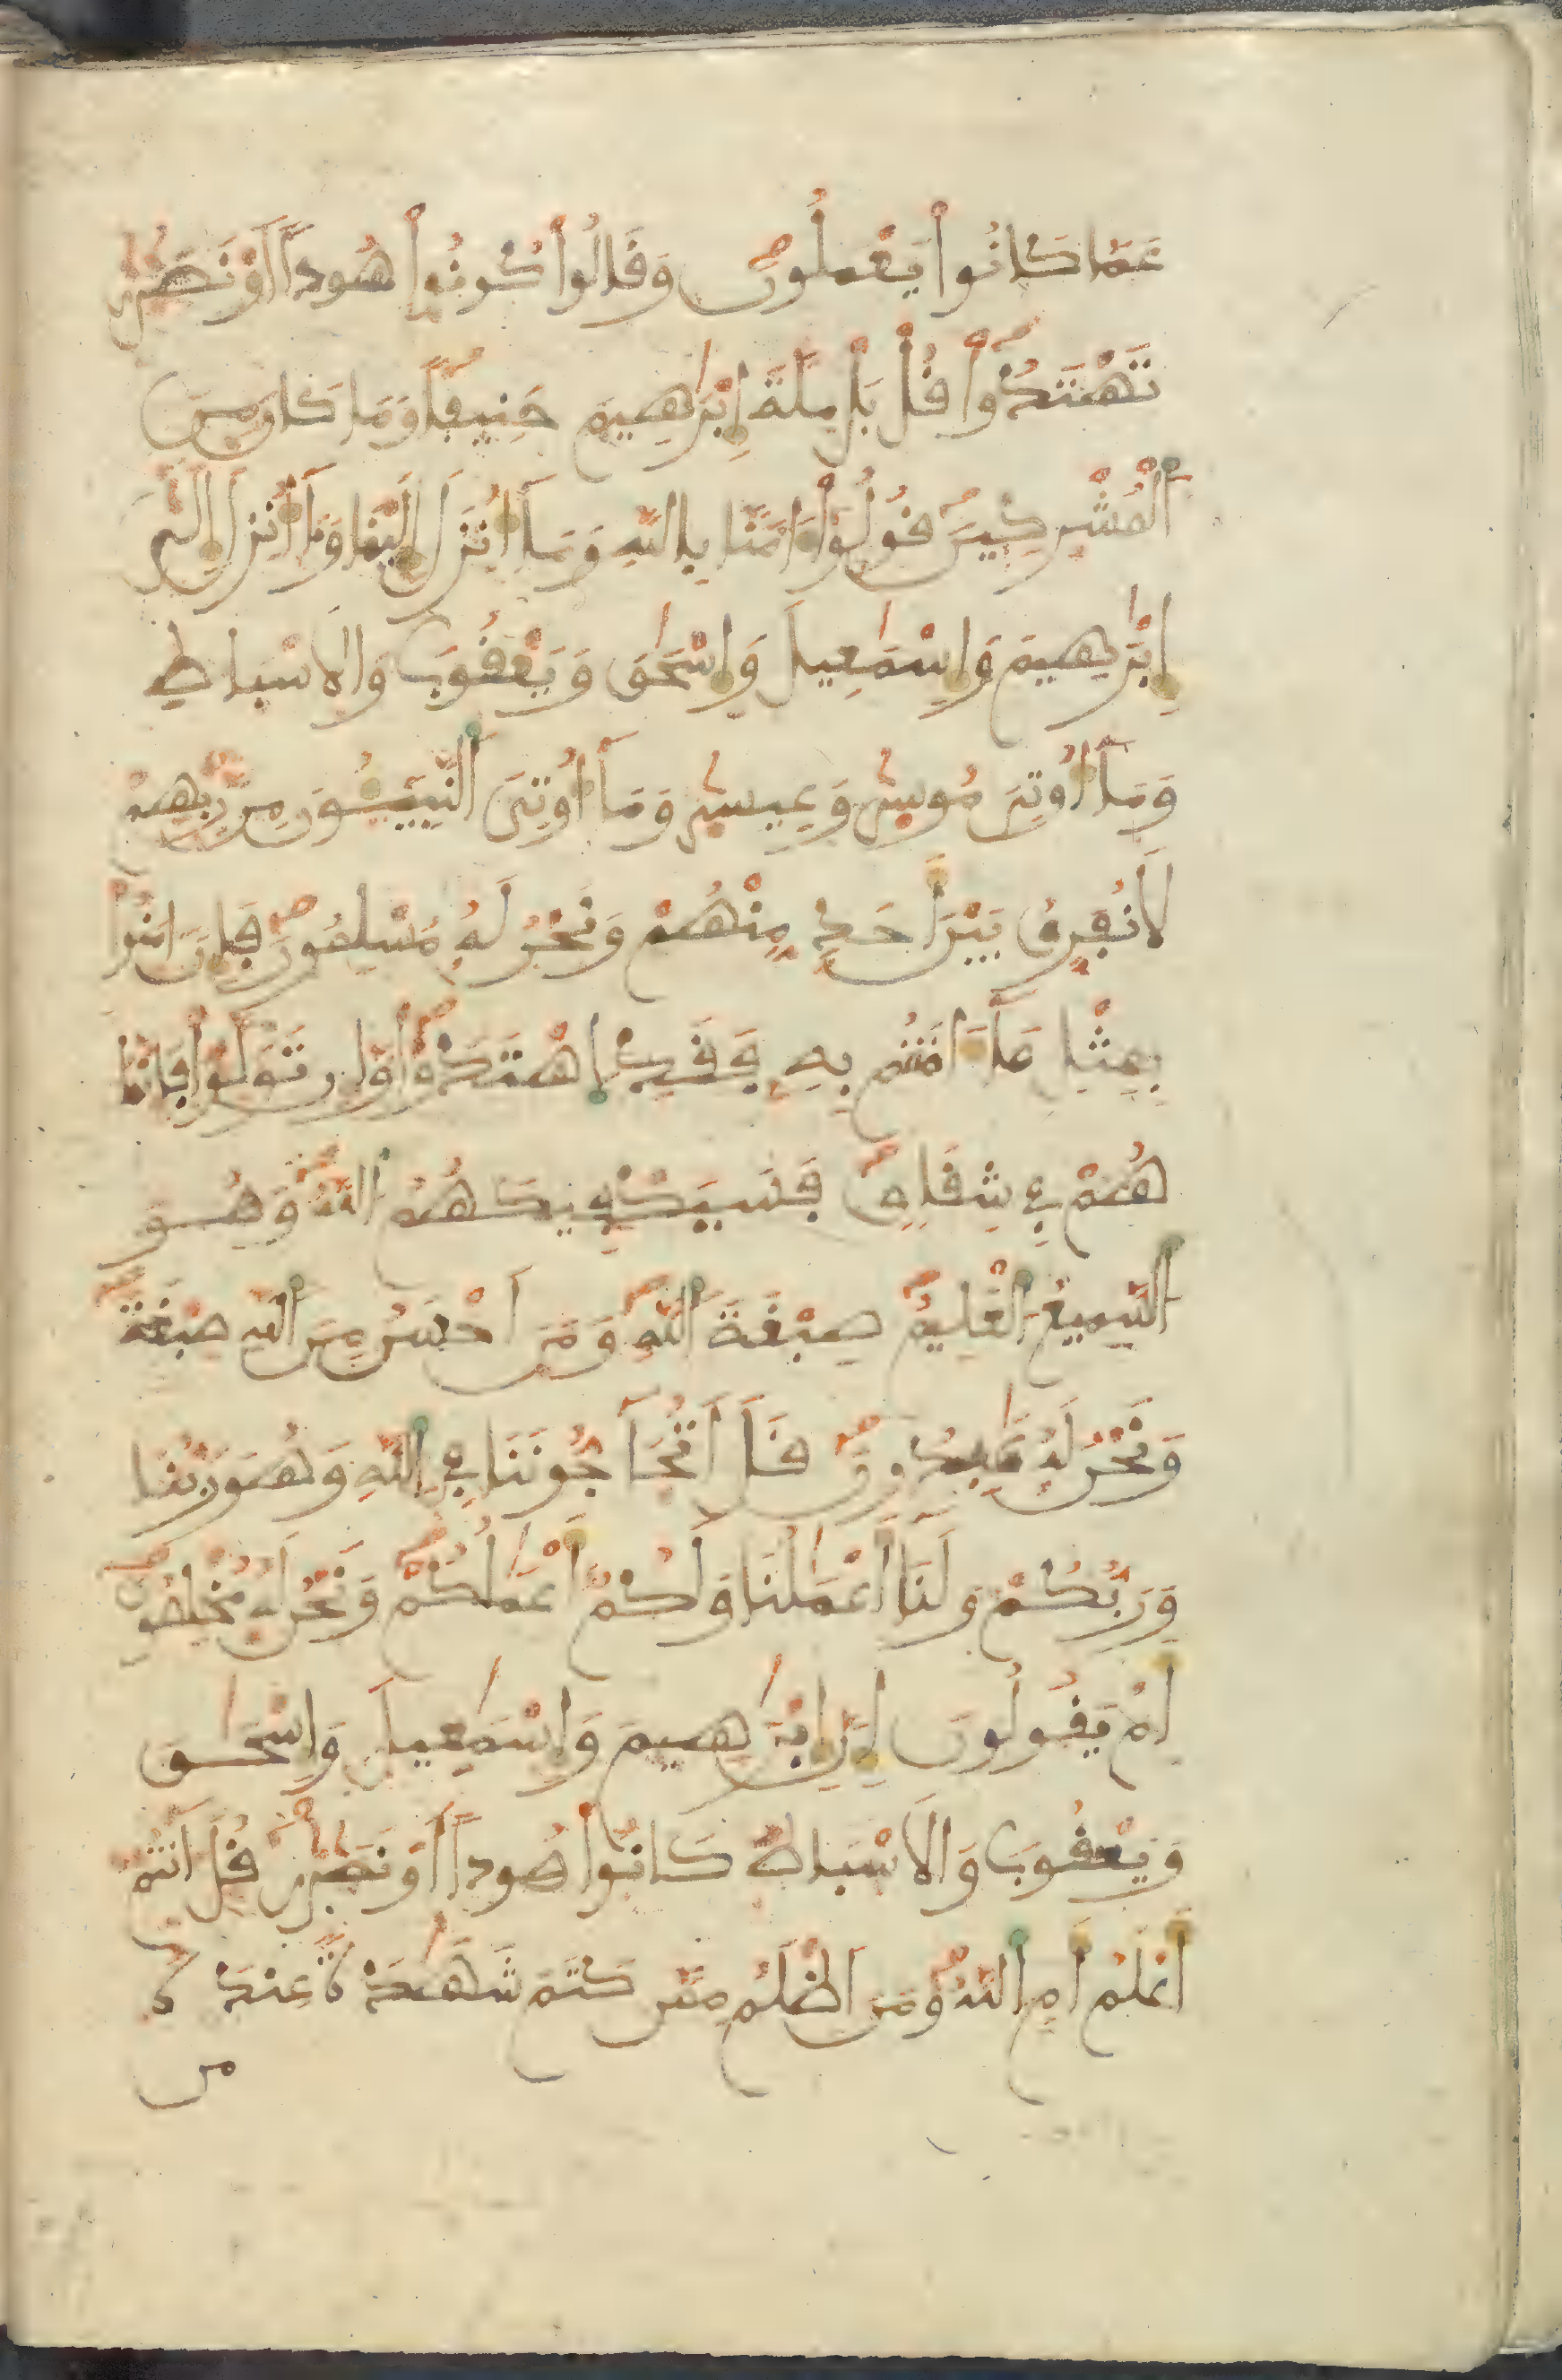 عَمَّا كَانُوا يَعْمَلُونَ وَقَالُوا كُونُوا هُوداً اَوْ نَصَٰرىٰ
تَهْتَدُوا قُلْ بَلْ مِلَّةَ إِبْرَٰهِيمَ حَنِيفاً وَمَا كَانَ مِنَ
اَلْمُشْرِكِينَ قُولُوا ءَامَنَّا بِاللَّهِ وَمَآ أُنزِلَ إِلَيْنَا وَمَآ أُنزِلَ إِلَىٰٓ
إِبْرَٰهِيمَ وَإِسْمَٰعِيلَ وَإِسْحَٰقَ وَيَعْقُوبَ وَالَاسْبَاطِ
وَمَآ أُوتِيَ مُوسىٰ وَعِيسىٰ وَمَآ أُوتِيَ اَلنَّبِيٓـُٔونَ مِن رَّبِّهِمْ
لَا نُفَرِّقُ بَيْنَ أَحَدٍ مِّنْهُمْ وَنَحْنُ لَهُ مُسْلِمُونَ فَإِنَ امَنُوا
بِمِثْلِ مَآ ءَامَنتُم بِهِ فَقَدِ اِهْتَدَوا وَّإِن تَوَلَّوْا فَإِنَّمَا
هُمْ فِي شِقَاقٍ فَسَيَكْفِيكَهُمُ اَللَّهُ وَهُوَ
اَلسَّمِيعُ اَلْعَلِيمُ صِبْغَةَ اَللَّهِ وَمَنَ اَحْسَنُ مِنَ اَللَّهِ صِبْغَةً
وَنَحْنُ لَهُ عَٰبِدُونَ قُلَ اَتُحَآجُّونَنَا فِي اِللَّهِ وَهُوَ رَبُّنَا
وَرَبُّكُمْ وَلَنَآ أَعْمَٰلُنَا وَلَكُمُۥٓ أَعْمَٰلُكُمْ وَنَحْنُ لَهُ مُخْلِصُونَ
أَمْ يَقُولُونَ إِنَّ إِبْرَٰهِيمَ وَإِسْمَٰعِيلَ وَإِسْحَٰقَ
وَيَعْقُوبَ وَالَاسْبَاطَ كَانُوا هُوداً اَوْ نَصَٰرىٰ قُلَ آنتُمُۥٓ
أَعْلَمُ أَمِ اِللَّهُ وَمَنَ اَظْلَمُ مِمَّن كَتَمَ شَهَٰدَةً عِندَهُ
من